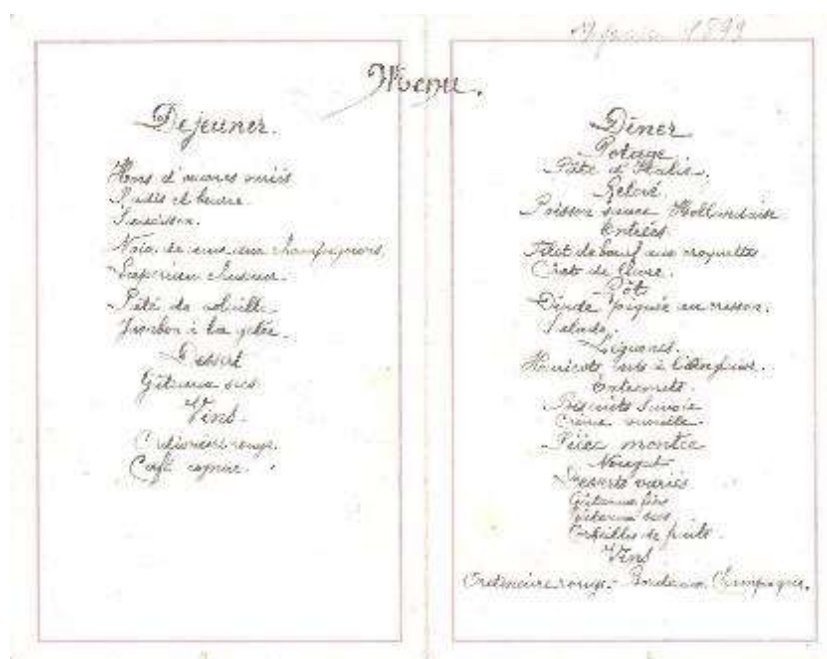 1899
Menu.
Dejeuner.
Hors d'œuvres variés
Radis et beurre
Saucisson.
Noix de veau aux champignons.
chasseur.
Pâté de volaille
Jambon à la gelée.
Dessert
Gâteaux secs
Vins.
Ordinaire rouge.
Café cognac.
Dîner
Potage
Pâte d'Italie.
Relevé.
Poisson sauce Hollandaise
Entrées
Filet de bœuf aux croquettes
Civet de lièvre.
Rôt
Dinde piquée au cresson.
Salade.
Légumes.
Haricots verts à l'Anglaise.
Entremets.
Biscuits Savoie
Crème vanille.
Pièce montée
Nougat
Desserts variés
Gâteaux fins
Gâteaux secs
Corbeilles de fruits.
Vins
Ordinaire rouge. Bordeaux Champagne.